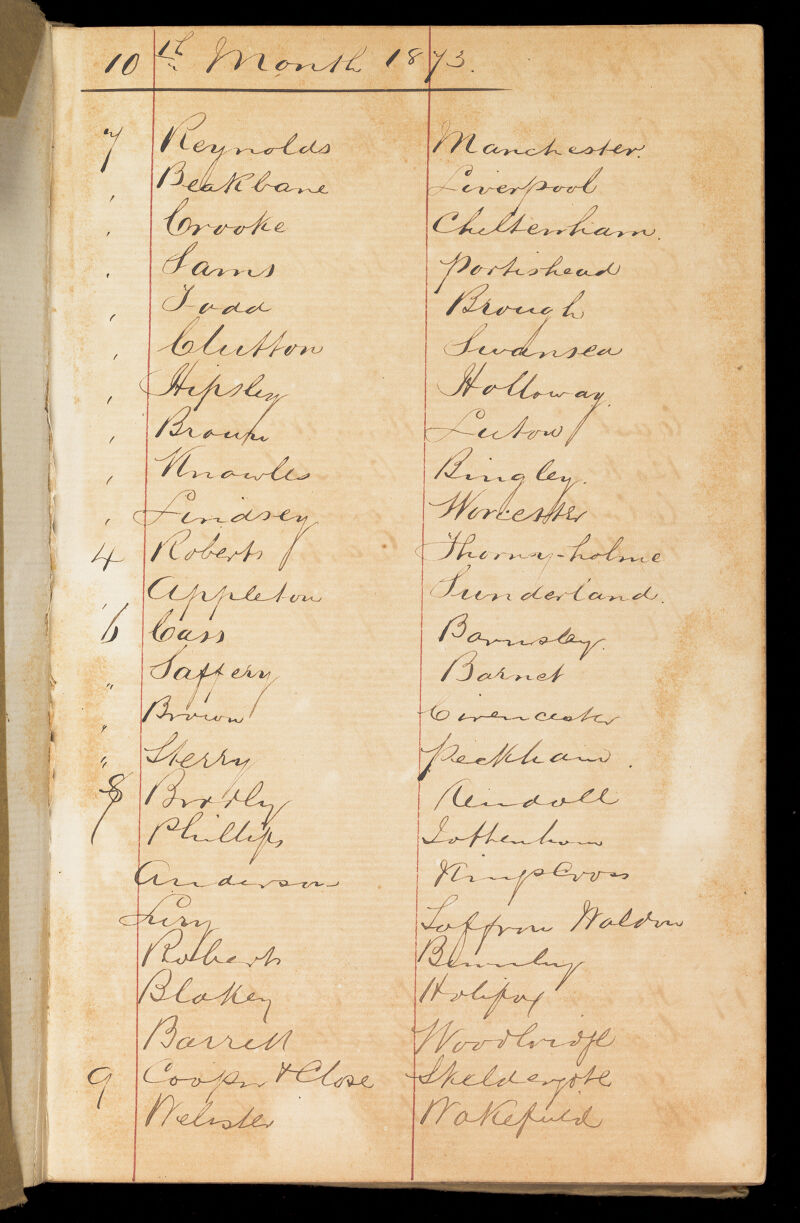 10th Month 1873.
7 Reynolds Manchester.
, Beakbane Liverpool
, Crooke Cheltenham.
, Sams Portishead
, Todd Brough
, Clutton Swansea
, Hipsley Holloway.
, Brown Luton
, Knowles Bingley.
, Lindsey Worcester
4 Roberts Thorny-holme
, Appleton Sunderland.
6 Cass Barnsley.
" Saffery Barnet
" Brown Cirencester
" Sterry Peckham.
8 Kendall
Phillips Tottenham
Anderson Kings Cross
Lury Saffron Waldon
Roberts
Blakey Halifax
Barrett Woodbridge
9 Cooper & Close Skeldergate
Webster Wakefield